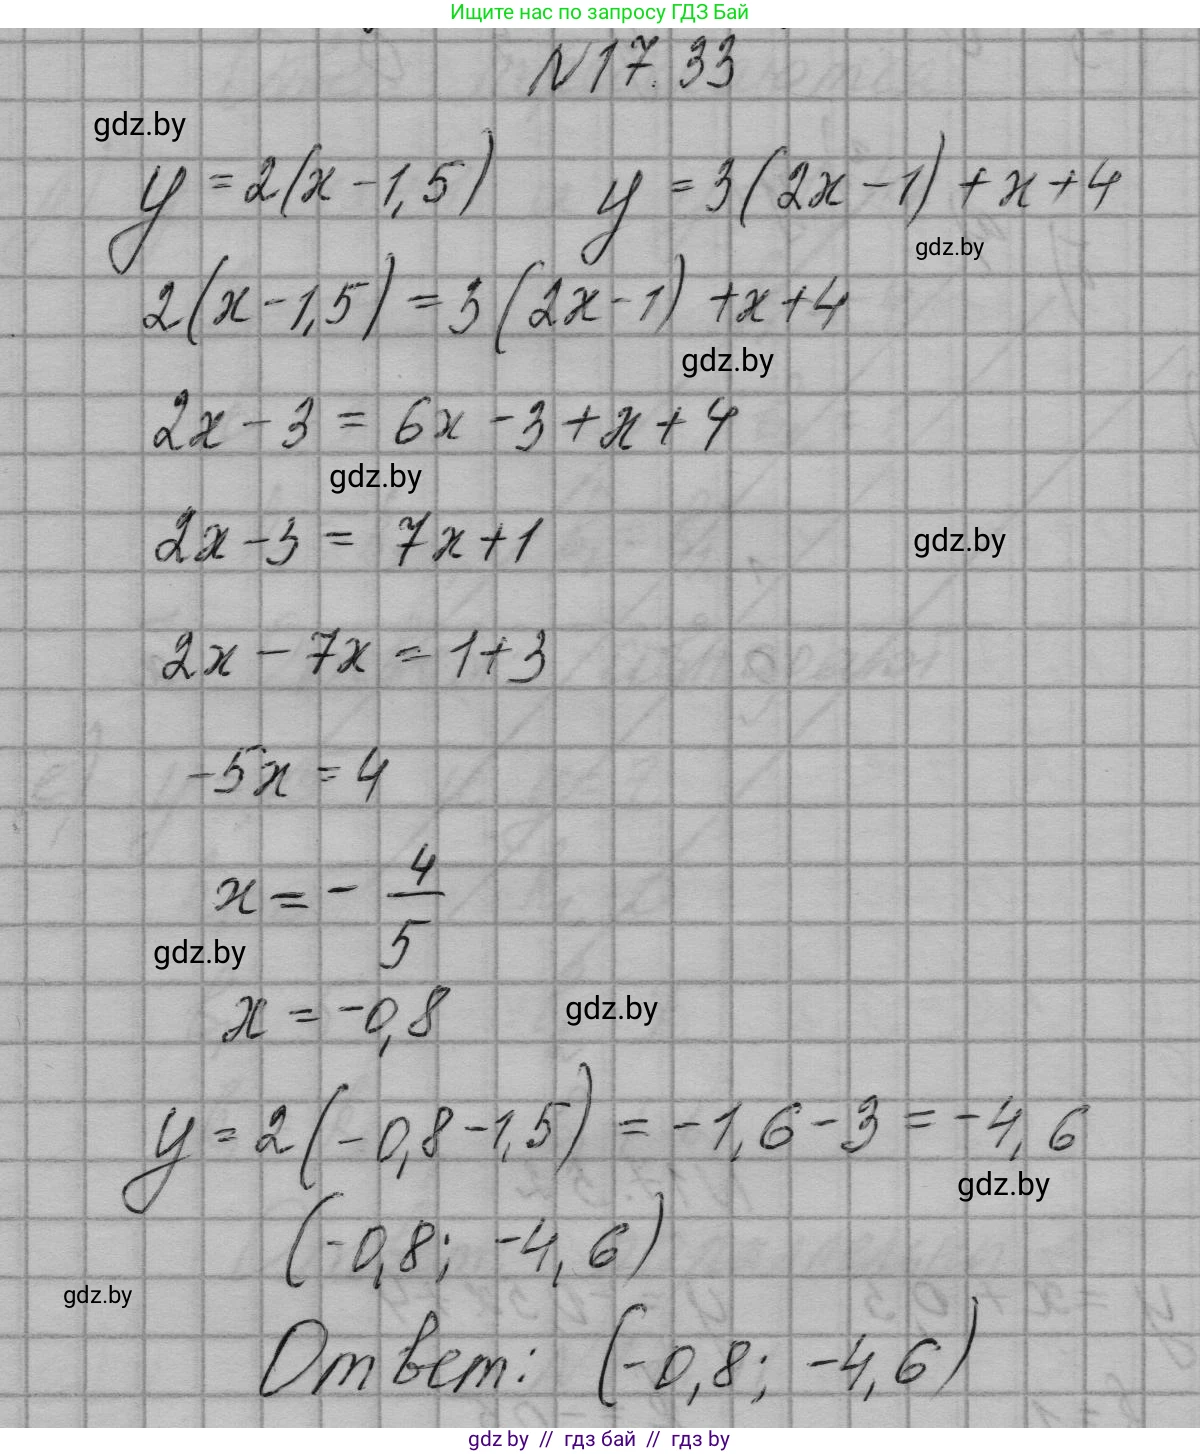 Ищите нас по запросу ГДЗ Бай
N17.33
gdz.by
y = 2(x - 1,5) y = 3(2x - 1) + x + 4
gdz.by
2(x - 1,5) = 3(2x - 1) + x + 4
gdz.by
2x - 3 = 6x - 3 + x + 4
gdz.by
2x - 3 = 7x + 1
gdz.by
2x - 7x = 1 + 3
-5x = 4
x = - 4/5
gdz.by
x = -0,8
gdz.by
y = 2(-0,8 - 1,5) = -1,6 - 3 = -4,6
gdz.by
(-0,8; -4,6)
gdz.by
Ответ: (-0,8; -4,6)
gdz by // гдз бай // гдз by